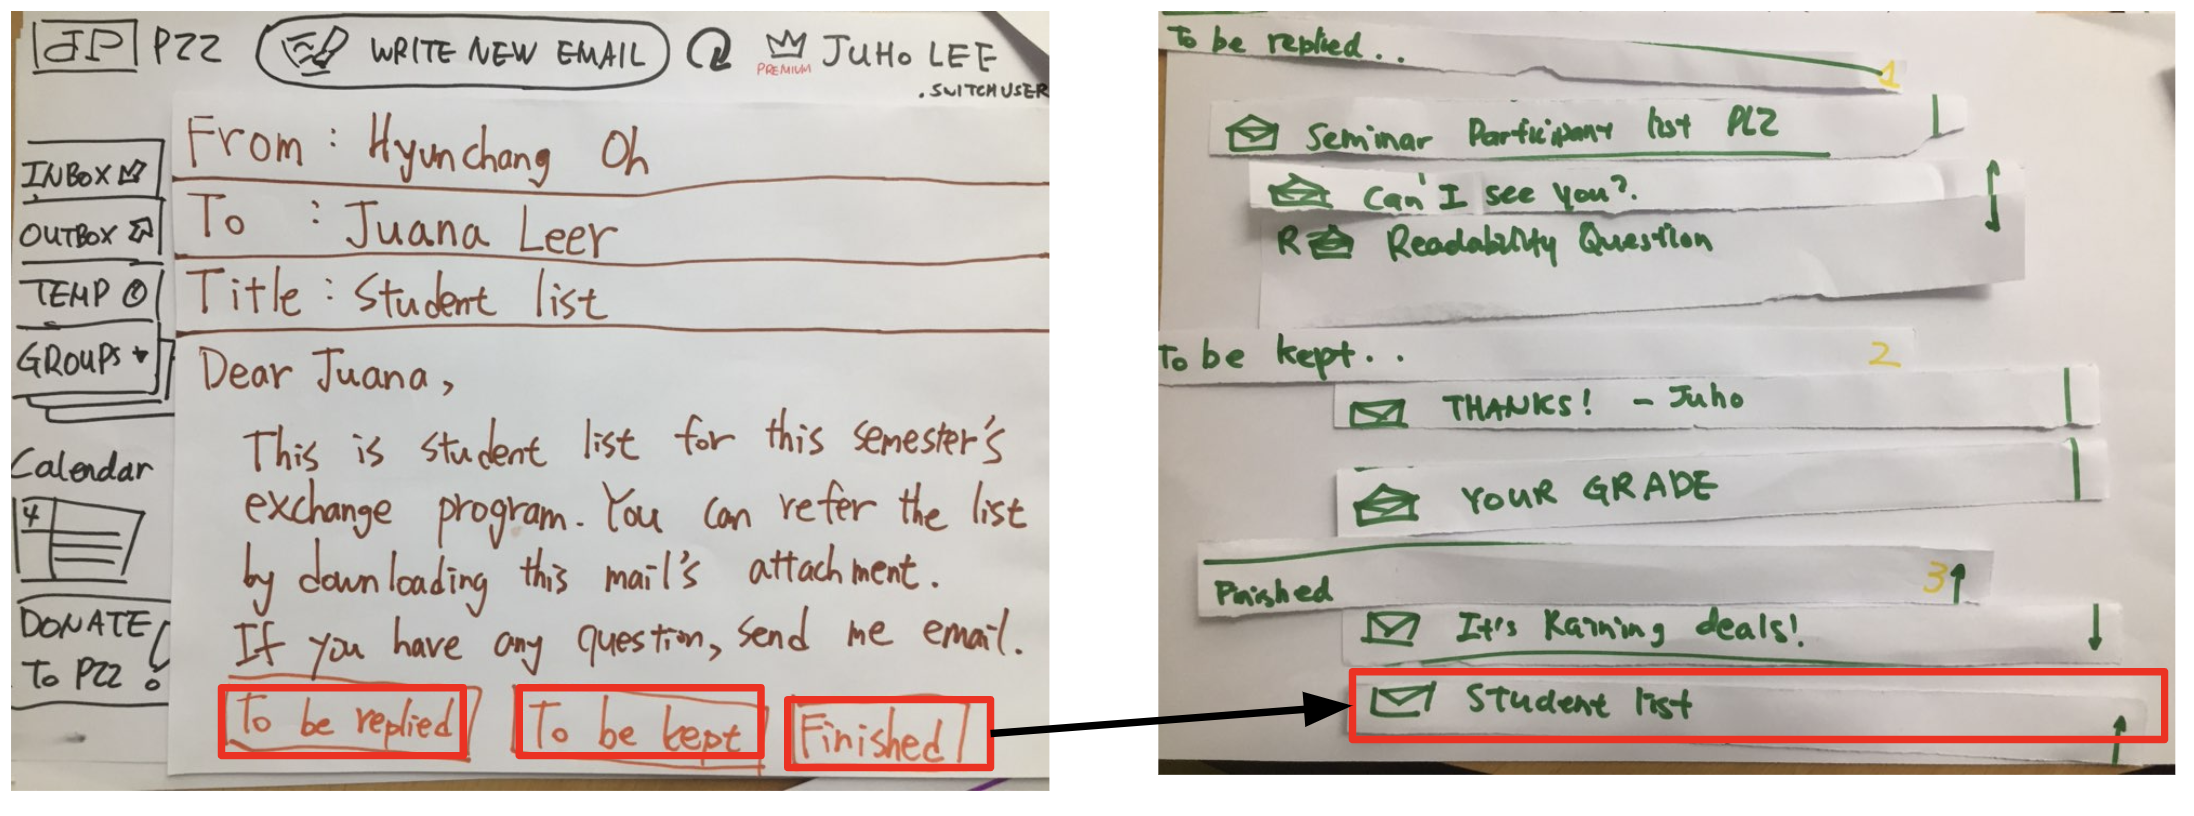 JP PZZ WRITE NEW EMAIL PREMIUM JUHO LEE
. SWITCH USER
INBOX
OUTBOX
TEMP
GROUPS
Calendar
4
DONATE
To PZZ!
From : Hyunchang Oh
To : Juana Leer
Title : Student list
Dear Juana,
This is student list for this semester's
exchange program. You can refer the list
by downloading this mail's attachment.
If you have any question, send me email.
To be replied To be kept Finished
To be replied.. 1
Seminar Participant list PLZ
Can I see you?
R Readability Question
To be kept.. 2
THANKS! - Juho
YOUR GRADE
Finished 3
It's Raining deals!
Student list